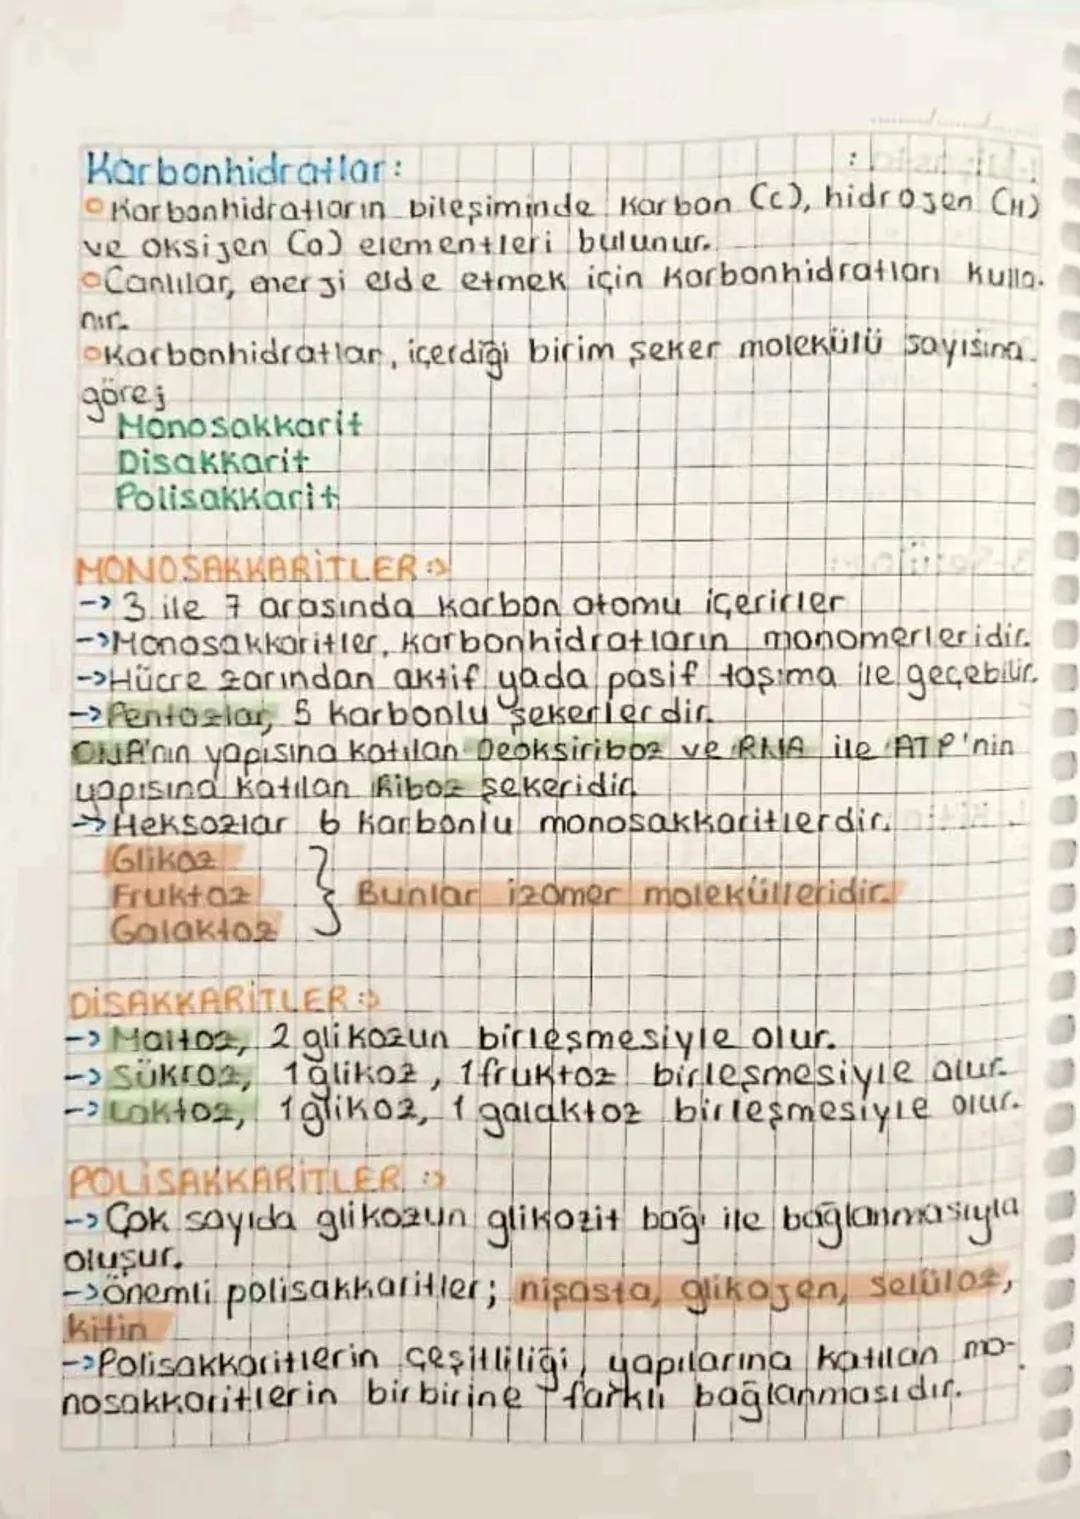 Karbonhidratlar:
Karbonhidratların bileşiminde karbon (C), hidrojen (H)
ve oksijen (O) elementleri bulunur.
Canlılar, enerji elde etmek için karbonhidratları kulla-
nır.
Karbonhidratlar, içerdiği birim şeker molekülü sayısına
göre;
Monosakkarit
Disakkarit
Polisakkarit
MONOSAKKARİTLER :>
-> 3 ile 7 arasında karbon atomu içerirler
->Monosakkaritler, karbonhidratların monomerleridir.
->Hücre zarından aktif yada pasif taşıma ile geçebilir.
->Pentozlar, 5 karbonlu şekerlerdir.
DNA'nın yapısına katılan Deoksiriboz ve RNA ile ATP'nin
yapısına katılan Riboz şekeridir.
->Heksozlar 6 karbonlu monosakkaritlerdir.
Glikoz
Fruktoz } Bunlar izomer molekülleridir.
Galaktoz
DİSAKKARİTLER :>
-> Maltoz, 2 glikozun birleşmesiyle olur.
-> Sükroz, 1 glikoz, 1 fruktoz birleşmesiyle olur.
-> Laktoz, 1 glikoz, 1 galaktoz birleşmesiyle olur.
POLİSAKKARİTLER :>
-> Çok sayıda glikozun glikozit bağı ile bağlanmasıyla
oluşur.
->Önemli polisakkaritler; nişasta, glikojen, selüloz,
kitin
->Polisakkaritlerin çeşitliliği, yapılarına katılan mo-
nosakkaritlerin birbirine farklı bağlanmasıdır.